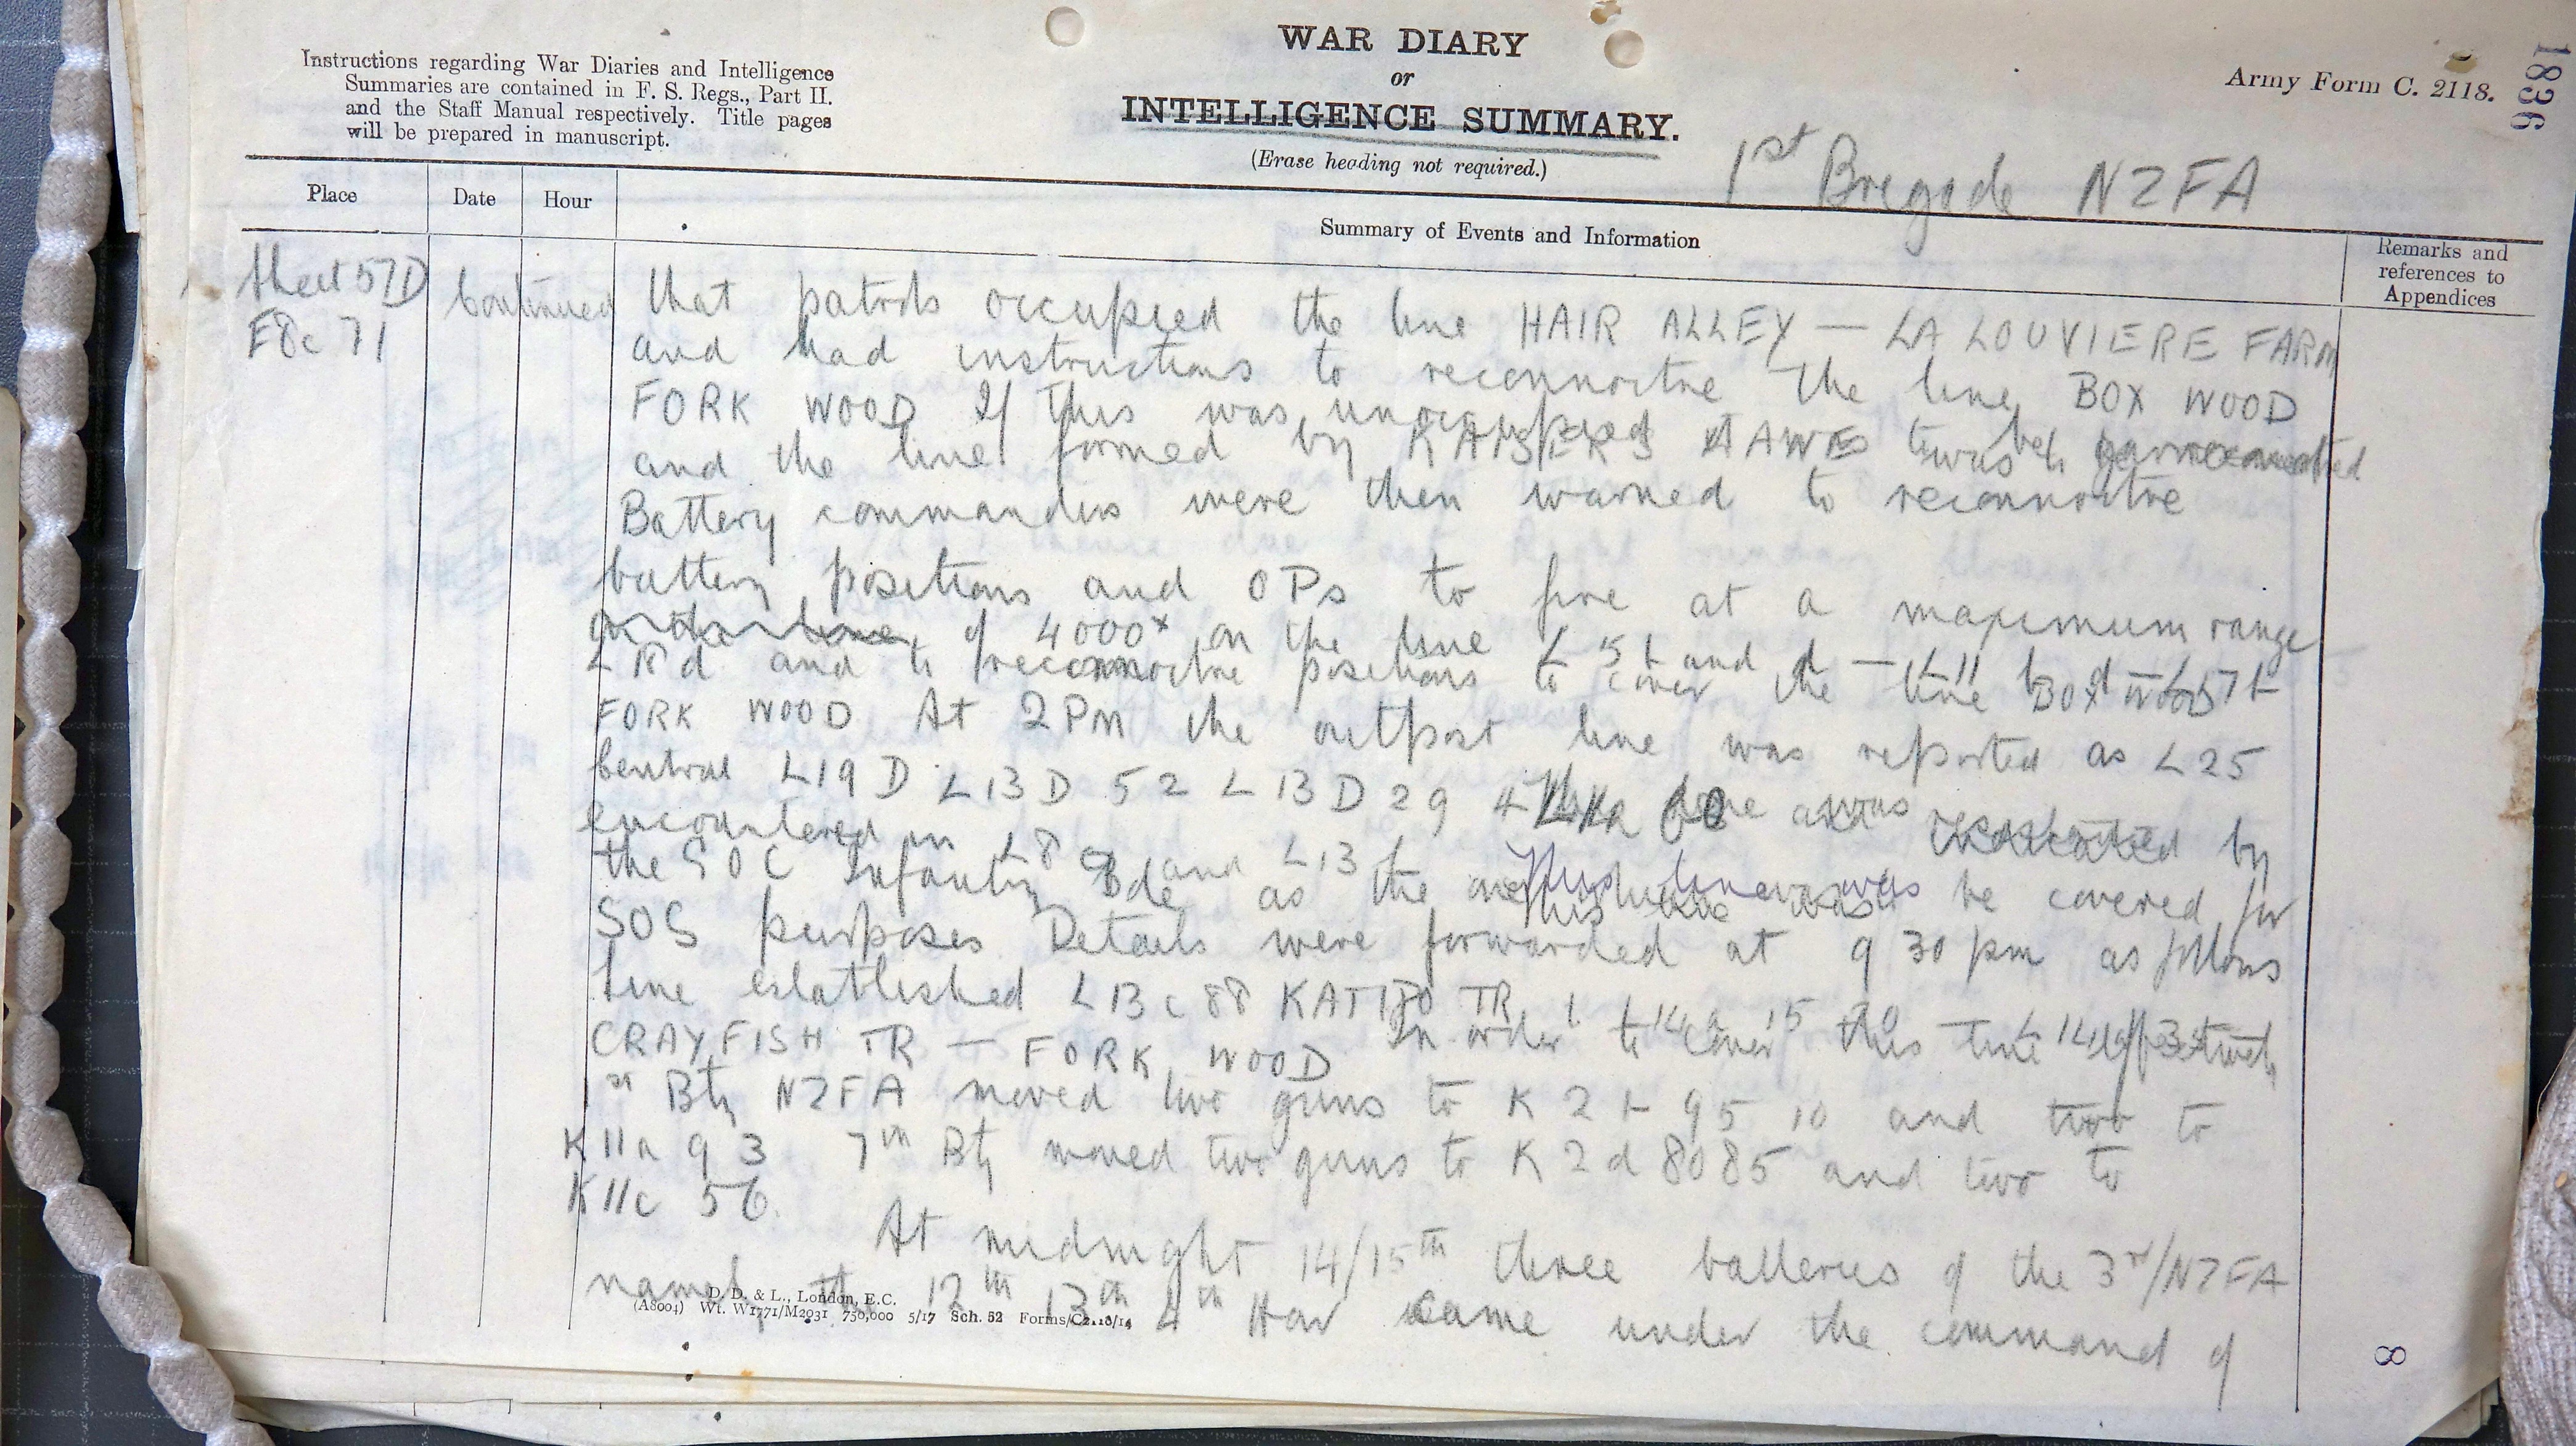 Instructions regarding War Diaries and Intelligence
Summaries are contained in F. S. Regs., Part II.
and the Staff Manual respectively. Title pages
will be prepared in manuscript.
WAR DIARY
or
INTELLIGENCE SUMMARY.
(Erase heading not required.)
Army Form C. 2118.
1836
1st Bregade NZFA
Place
Date
Hour
Summary of Events and Information
Remarks and
references to
Appendices
Sheet 57D
E8c 71
Continued
that patrols occupied the line HAIR ALLEY — LA LOUVIERE FARM
and had instructions to reconnoitre the line BOX WOOD
FORK WOOD If this was unoccupied
and the line formed by KAISERS
Battery commanders were then warned to reconnoitre
battery positions and OPs to fire at a maximum range
of 4000x on the line L 5 b and d — L 11
and to reconnoitre positions to cover the line BOX WOOD
FORK WOOD At 2 PM the outpost line was reported as L 25
Central L 19 D L 13 D 52 L 13 D 29
encountered in L 8 and L 13 This line was by
the GOC Infantry Bde as the be covered for
SOS purposes Details were forwarded at 9 30 pm as follows
line established L 13 c 88 KATIPO TR
CRAYFISH TR — FORK WOOD In order to cover this line
1st Bty NZFA moved two guns to K 2 b 95 10 and two to
K 11a 9 3 7th Bty moved two guns to K 2 d 80 85 and two to
K 11c 56.
At midnight 14/15th three batteries of the 3rd/NZFA
namely the 12th 13th 4th How came under the command of
D. D. & L., London, E.C.
(A8004) Wt. W1771/M2031 750,000 5/17 Sch. 52 Forms/C2118/14
8